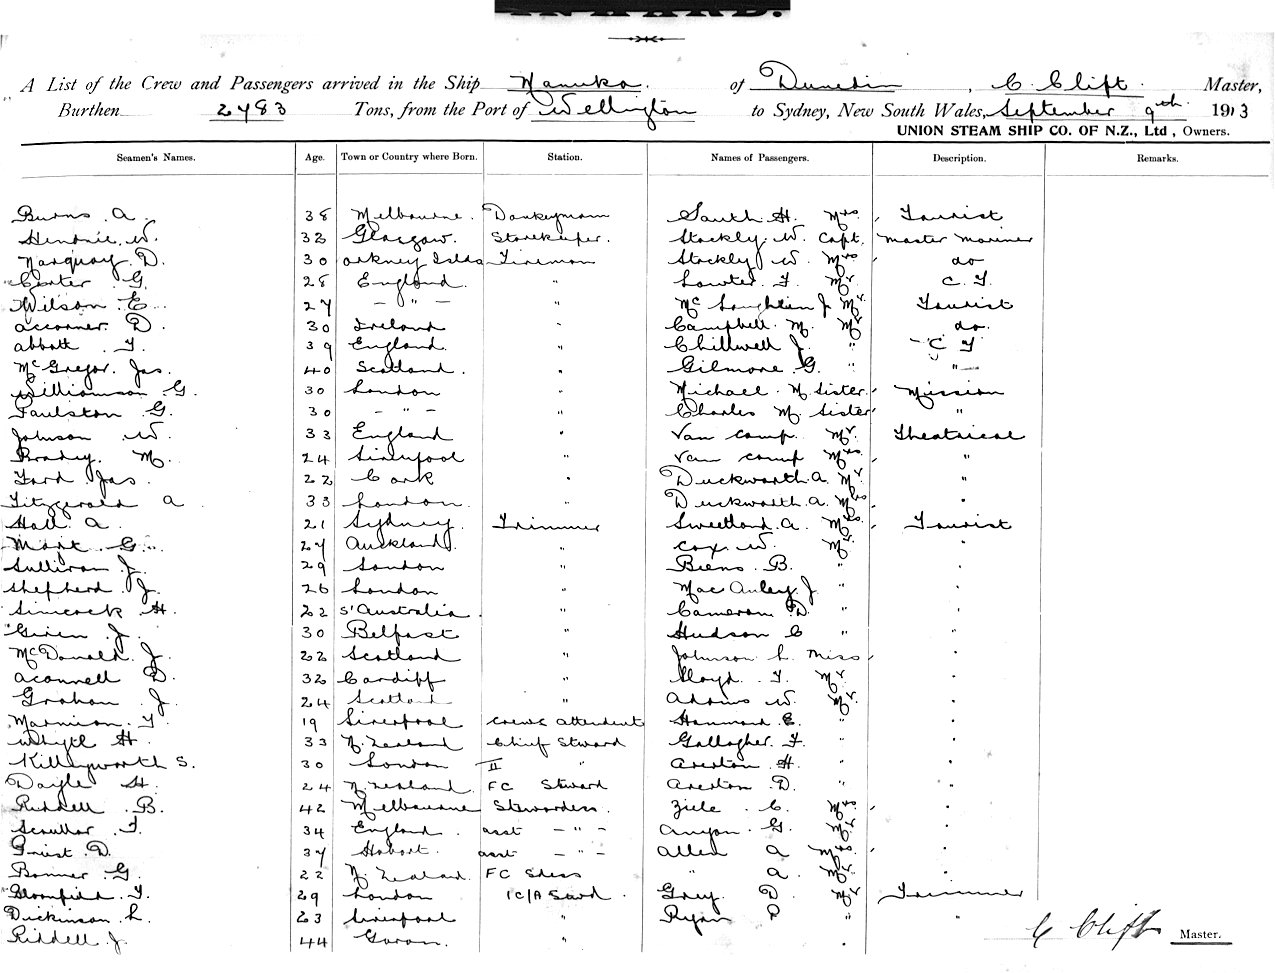 INWARD.
A List of the Crew and Passengers arrived in the Ship Manuka. of Dunedin, C Clift. Master,
Burthen 2483 Tons, from the Port of Wellington to Sydney, New South Wales, September 9th 1913
UNION STEAM SHIP CO. OF N.Z., Ltd, Owners.
Seamen's Names. Age. Town or Country where Born. Station. Names of Passengers. Description. Remarks.
Burns. A. 38 Melbourne. Donkeyman South H. Mrs. Tourist
Hendrie. W. 32 Glasgow. Storekeeper. Stockly. W. Capt. Master Mariner
Marquay. D. 30 Orkney Islds Fireman Stockly W. Mrs do
Carter G. 28 England. " Lowter. F. Mr C. T.
Wilson. E. 27 - " - " McLoughlin J Mr Tourist
D. 30 Ireland " Campbell. M. Mr do.
Abbott F. 39 England. " Chillwell J. " C T
McGregor. Jas. 40 Scotland. " Gilmore G. " "
Williamson G. 30 London " Michael M. Sister. Mission
Paulston G. 30 - " - " Charles M. Sister "
Johnson W. 33 England " Van Camp Mr. Theatrical
Bradey. M. 24 Liverpool " Van Camp Mrs. "
Ford Jas. 22 Cork " Duckworth. A. Mr "
Fitzgerald A. 33 London. " Duckworth. A. Mrs "
Hall A. 21 Sydney. Trimmer Sweetland. A. Mrs. Tourist
Mark. G. 27 Auckland. " Cox. W. Mr "
Sullivan J. 29 London " B. " "
Shepherd J. 26 London " MacAuley. J. " "
Simcock H. 22 S'Australia " Cameron D. " "
J. 30 Belfast " Hudson C " "
McDonald. J. 22 Scotland " Johnson L. Miss "
Aconnell D. 32 Cardiff " Lloyd. F. Mr "
Graham J. 24 Scotland " Adams W. Mr "
Marnion. F. 19 Liverpool Crews Attendent Hammond E. " "
Whyte H. 33 N. Zealand Chief Steward Gallagher. F. " "
Killeyworth S. 30 London II " Averton. H. " "
Dayle H. 24 N. Zealand FC Steward Averton D. " "
Riddell B. 42 Melbourne Stewardess. Ziele. C. Mrs "
Scoullar F. 34 England. asst - " - Anyon. G. Mr "
Priest. D. 37 Hobart. asst - " - Allen A Mrs. "
Bonner G. 22 N. Zealand. FC " A. Mr.
Bloomfield. F. 29 London 1C/A Grey D. Mr Trimmer
Dickinson. L. 23 Liverpool " Ryan P " "
Riddell J. 44 "
C Clift Master.